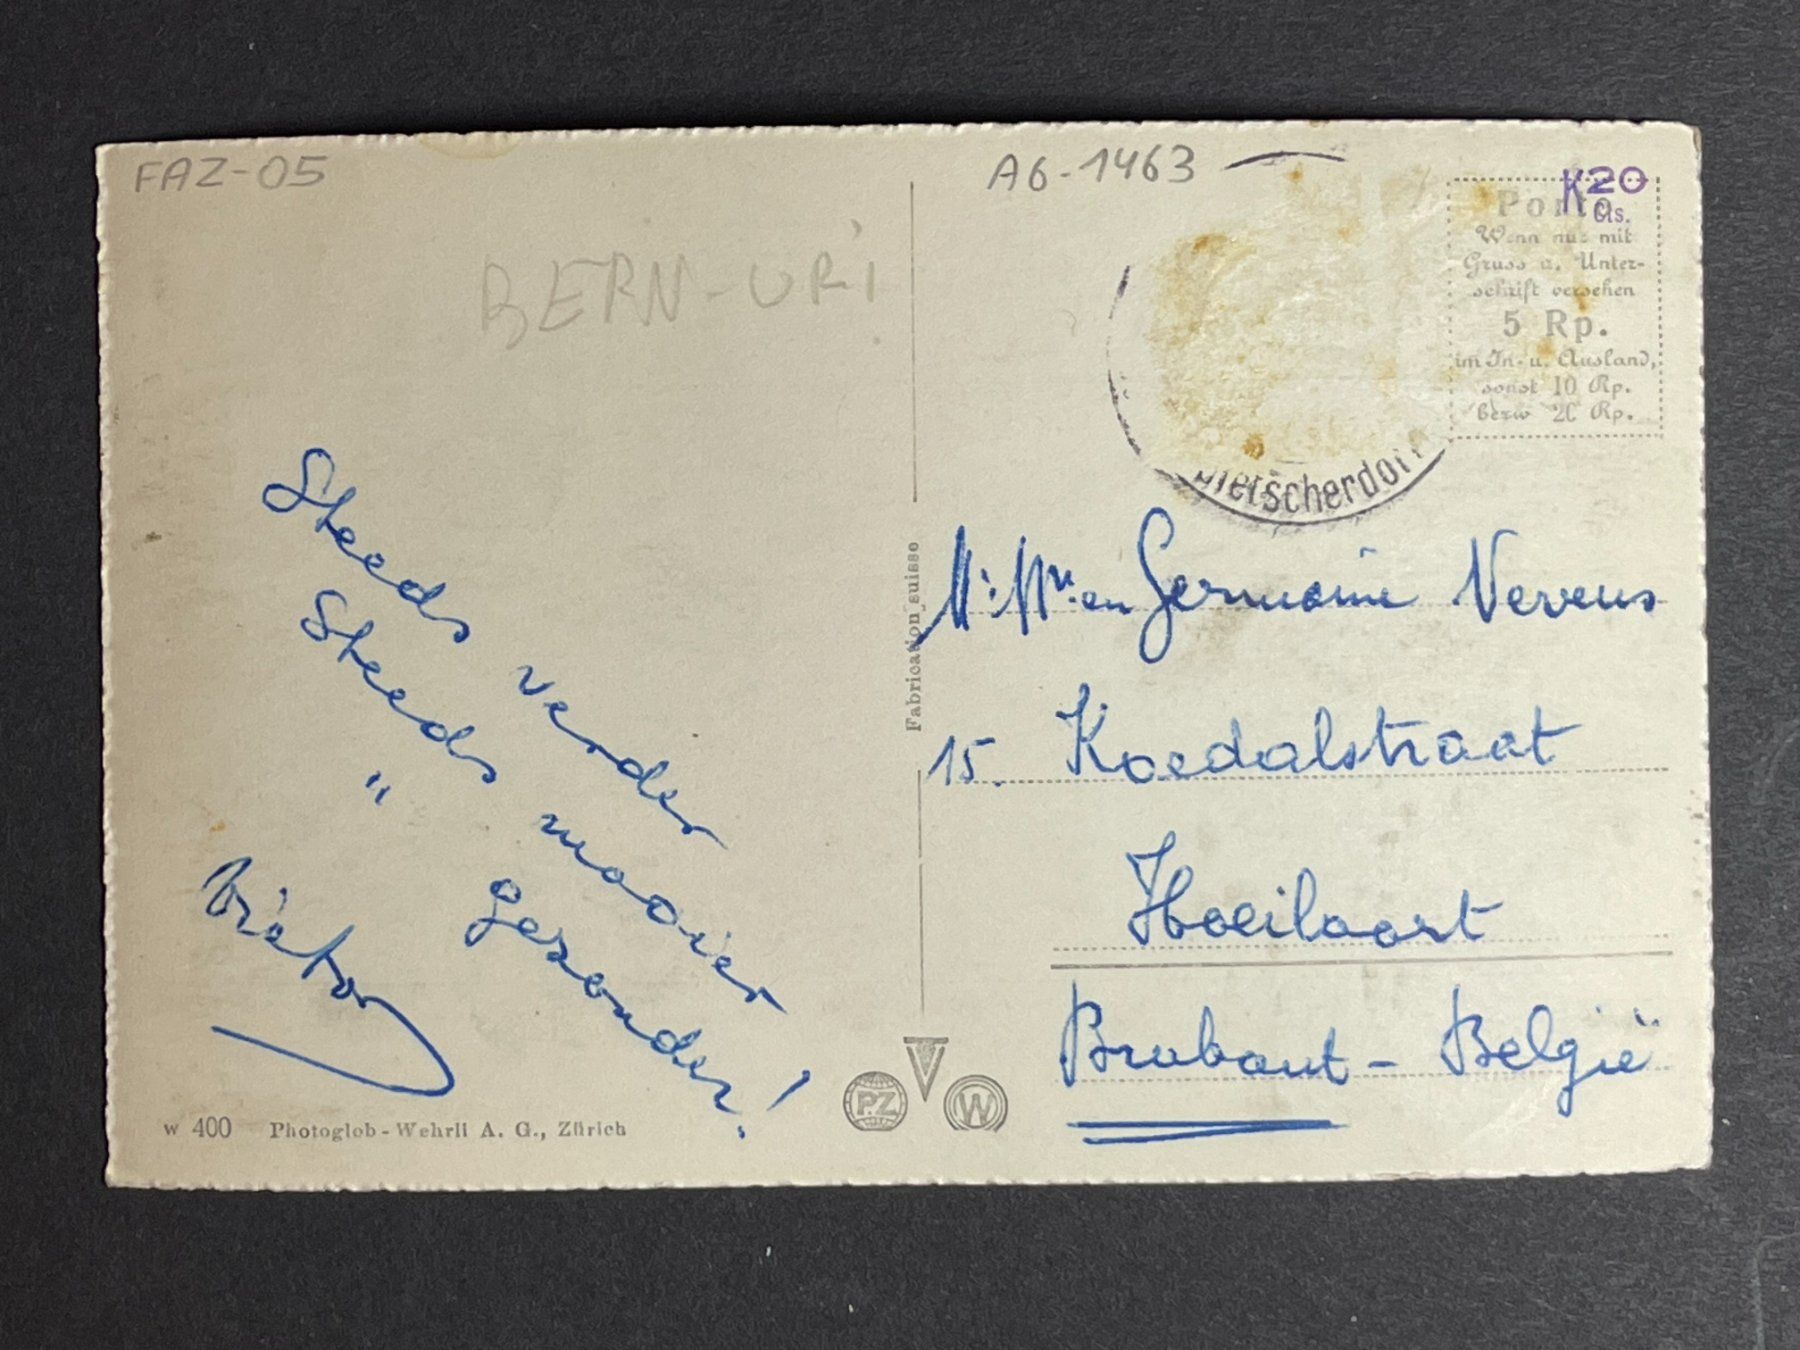 FAZ-05
A6-1463
K20
Cts.
BERN-URI
Porto
Wenn nur mit
Gruss u. Unter-
schrift versehen
5 Rp.
im In- u. Ausland,
sonst 10 Rp.
bezw 20 Rp.
Steeds verder
Steeds mooier
" gezonder!
Viktor
Fabrication suisse
M: Mr. en Germaine Vereus
15. Koedalstraat
Hoeilaart
Brabant - België
W 400 Photoglob-Wehrli A. G., Zürich
PZ
W